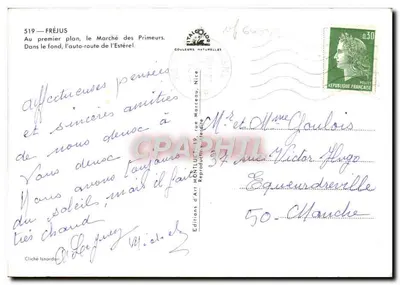 519 — FRÉJUS
Au premier plan, le Marché des Primeurs.
Dans le fond, l'auto-route de l'Estérel.
COULEURS NATURELLES
0,30
RÉPUBLIQUE FRANÇAISE
Affectueuses pensées
et sincères amitiés
de nous deux à
Vous deux
Nous avons toujours
du soleil, mais il fait
très chaud
Michel
Cliché
Editions d'Art
rue Masséna, Nice
Reproduction interdite
CPARHAMA
Mr et Mme Gaulois
37 rue Victor Hugo
Equeurdreville
50 - Manche